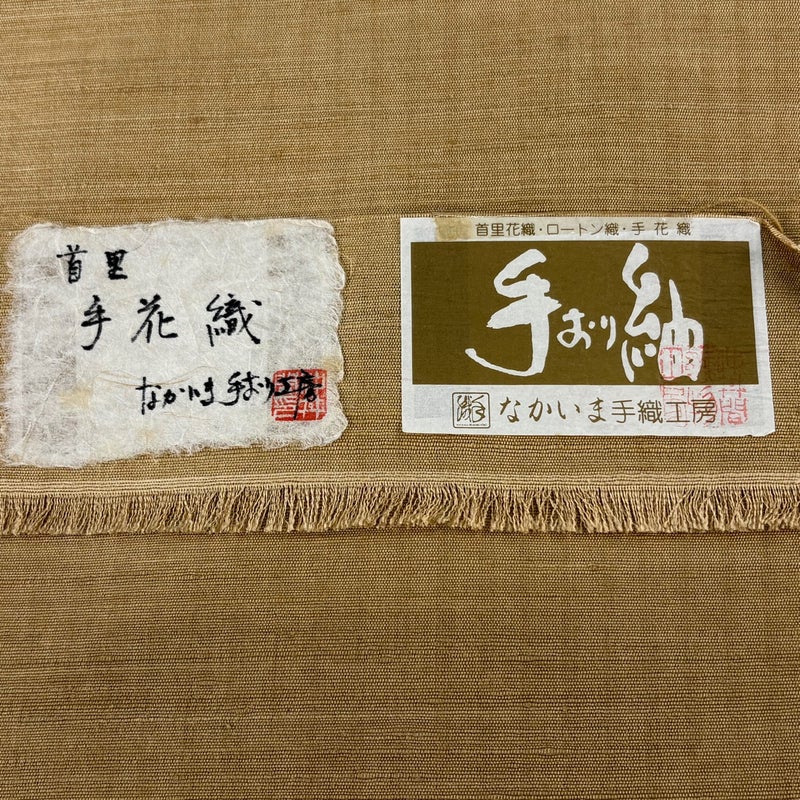 首里
手花織
なかいま手おり工房
首里花織・ロートン織・手花織
手おり紬
なかいま手織工房